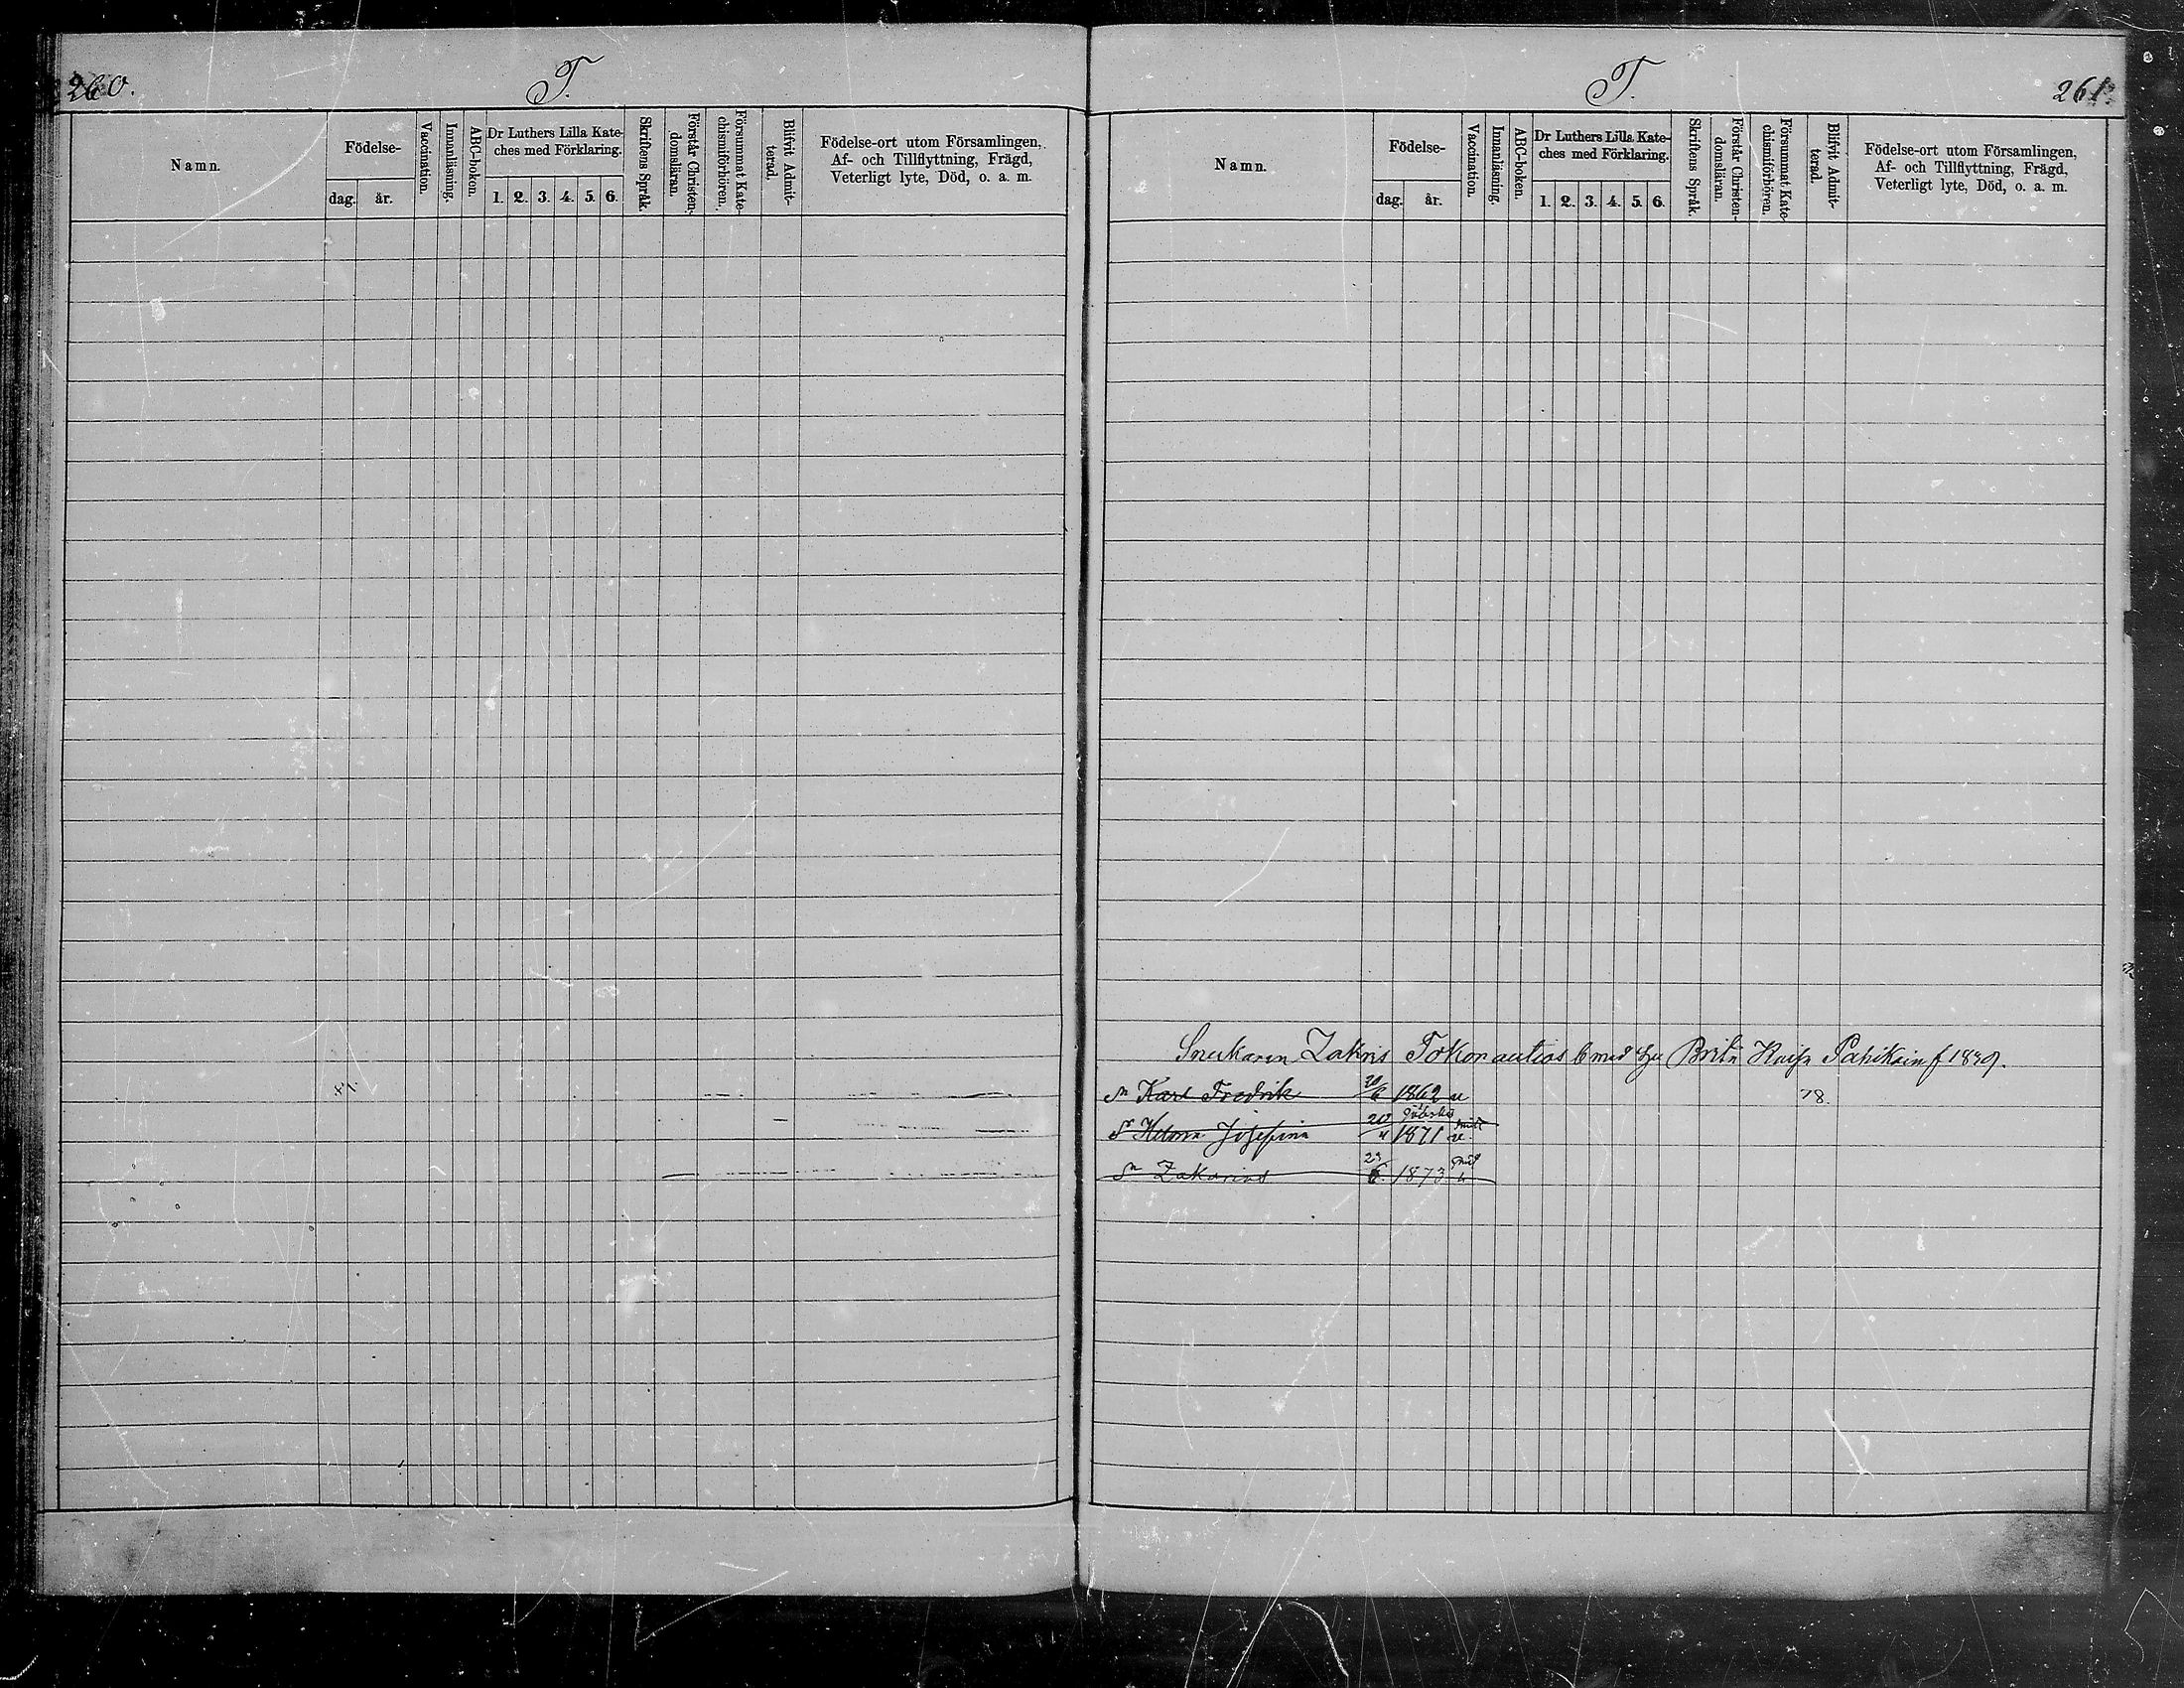 260.
T.
Namn.
Födelse-
dag.
år.
Vaccination.
Innanläsning.
ABC-boken.
Dr Luthers Lilla Kate-
ches med Förklaring.
1. 2. 3. 4. 5. 6.
Skriftens Språk.
Förstår Christen-
domsläran.
Försummat Kate-
chismiförhören.
Blifvit Admit-
terad.
Födelse-ort utom Församlingen,
Af- och Tillflyttning, Frägd,
Veterligt lyte, Död, o. a. m.
T.
261
Namn.
Födelse-
dag.
år.
Vaccination.
Innanläsning.
ABC-boken.
Dr Luthers Lilla Kate-
ches med Förklaring.
1. 2. 3. 4. 5. 6.
Skriftens Språk.
Förstår Christen-
domsläran.
Försummat Kate-
chismiförhören.
Blifvit Admit-
terad.
Födelse-ort utom Församlingen,
Af- och Tillflyttning, Frägd,
Veterligt lyte, Död, o. a. m.
Zakris Brita Kaisa f 1839.
Sn Karl Fredrik 1862 u 78.
Josefina 20/4 1871 u
Sn Zakarias 23/6 1873